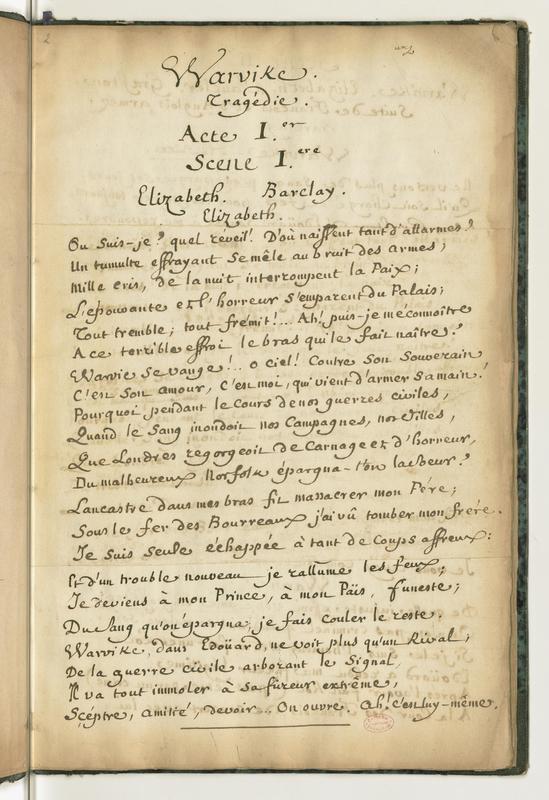 2
Warvike.
Tragédie.
Acte I.er
Scene I.ere
Elizabeth. Barclay.
Elizabeth.
Ou suis-je? quel réveil! D'où naissent tant d'allarmes?
Un tumulte effrayant se mêle au bruit des armes;
Mille cris, de la nuit interrompent la Paix;
L'épouvante et l'horreur s'emparent du Palais;
Tout tremble; tout frémit!... Ah! puis-je méconnoître
A ce terrible effroi le bras qui le fait naître?
Warvic se vange!.. o ciel! Contre son Souverain
C'est son amour, c'est moi, qui vient d'armer sa main!
Pourquoi pendant le cours de nos guerres civiles,
Quand le Sang inondoit nos Campagnes, nos Villes,
Que Londres regorgeoit de Carnage et d'horreur,
Du malheureux Norfolk épargna-t'on la Sœur?
Lancastre dans mes bras fit massacrer mon Pére;
Sous le fer des Bourreaux j'ai vû tomber mon frére.
Je suis seule échappée à tant de Coups affreux:
Et d'un trouble nouveau je rallume les feux;
Je deviens à mon Prince, à mon Païs, funeste;
Du Sang qu'on épargna, je fais couler le reste.
Warvike, dans Edoüard, ne voit plus qu'un Rival;
De la guerre civile arborant le Signal,
Il va tout immoler à sa fureur extrême,
Scéptre, amitié, devoir... On ouvre. Ah! c'est luy-même.